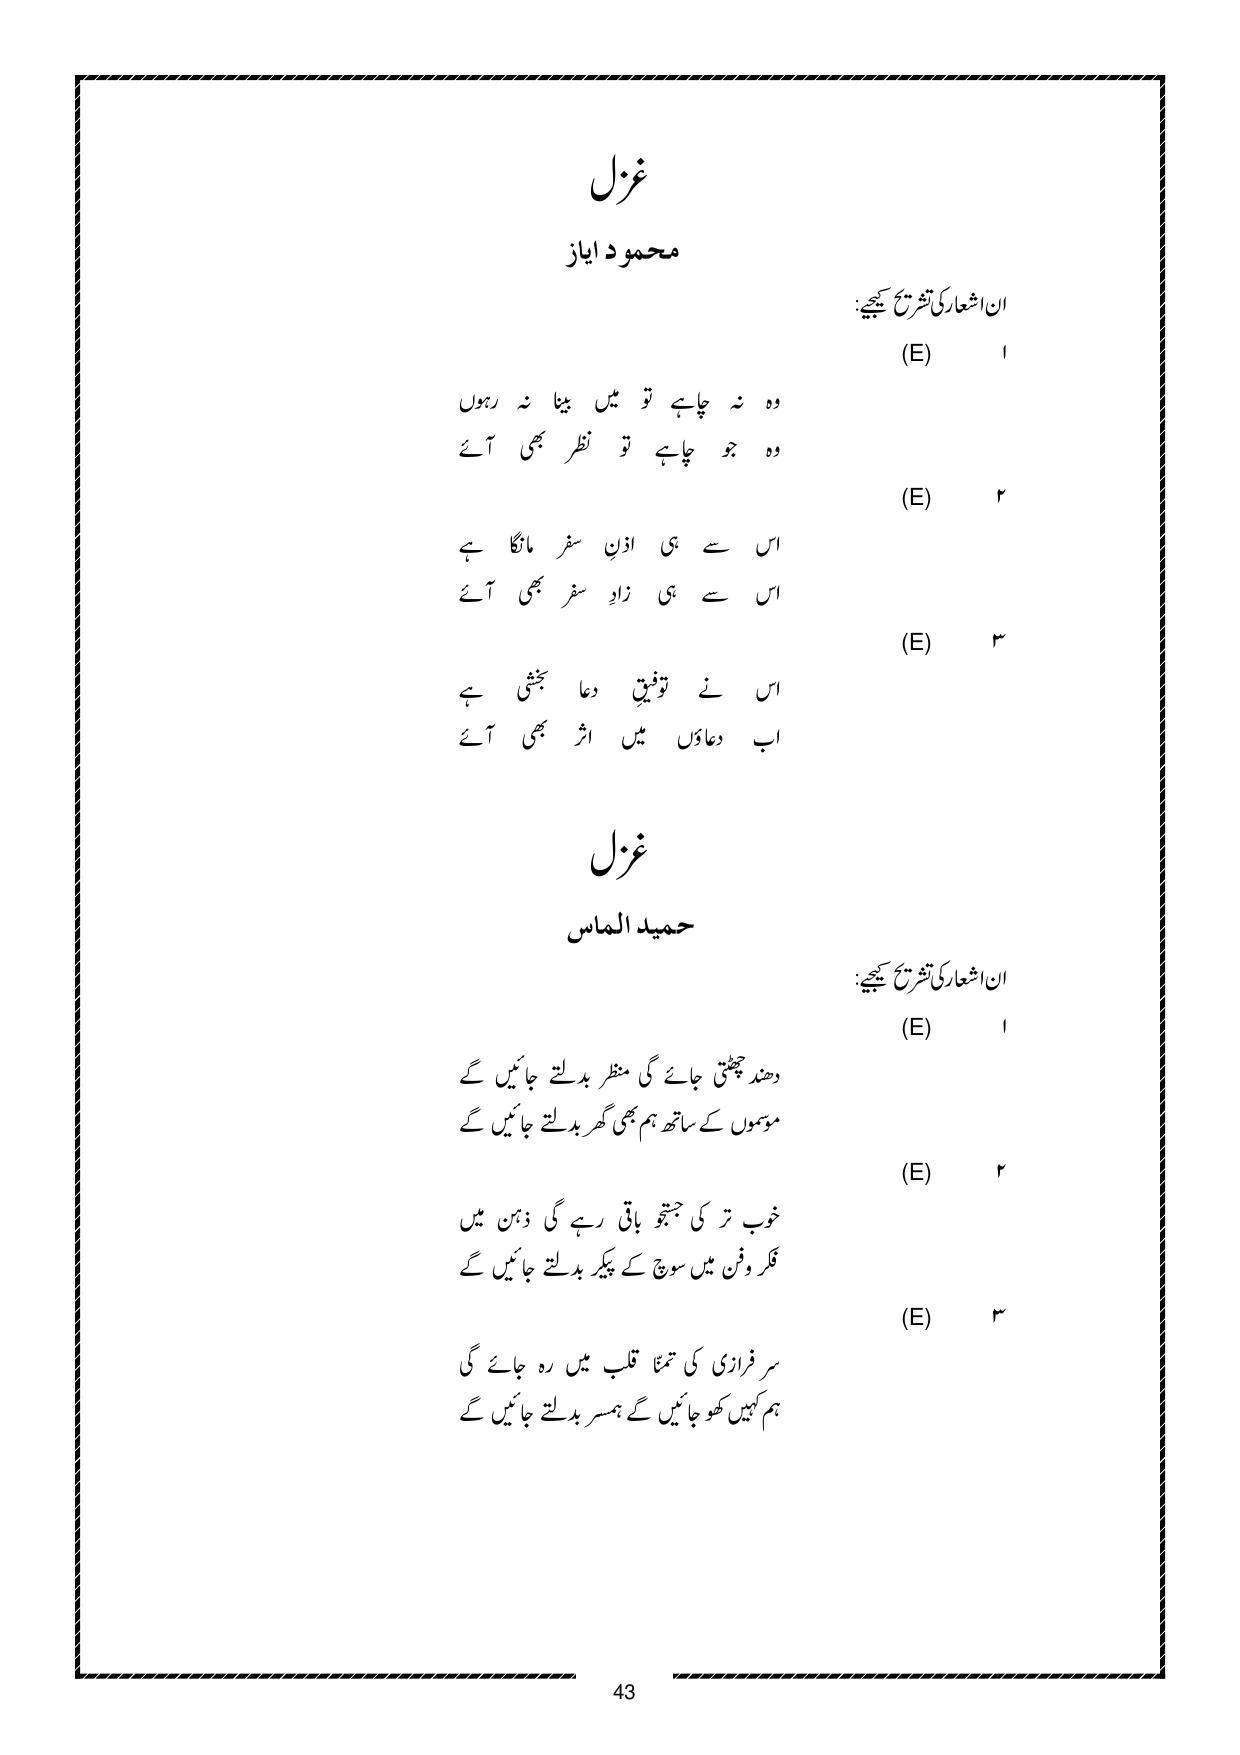 غزل
محمود ایاز
ان اشعار کی تشریح کیجیے:
۱ (E)
وہ نہ چاہے تو میں بینا نہ رہوں
وہ جو چاہے تو نظر بھی آئے
۲ (E)
اس سے ہی اذنِ سفر مانگا ہے
اس سے ہی زادِ سفر بھی آئے
۳ (E)
اس نے توفیقِ دعا بخشی ہے
اب دعاؤں میں اثر بھی آئے
غزل
حمید الماس
ان اشعار کی تشریح کیجیے:
۱ (E)
دھند چھٹتی جائے گی منظر بدلتے جائیں گے
موسموں کے ساتھ ہم بھی گھر بدلتے جائیں گے
۲ (E)
خوب تر کی جستجو باقی رہے گی ذہن میں
فکر وفن میں سوچ کے پیکر بدلتے جائیں گے
۳ (E)
سر فرازی کی تمنّا قلب میں رہ جائے گی
ہم کہیں کھو جائیں گے ہمسر بدلتے جائیں گے
43